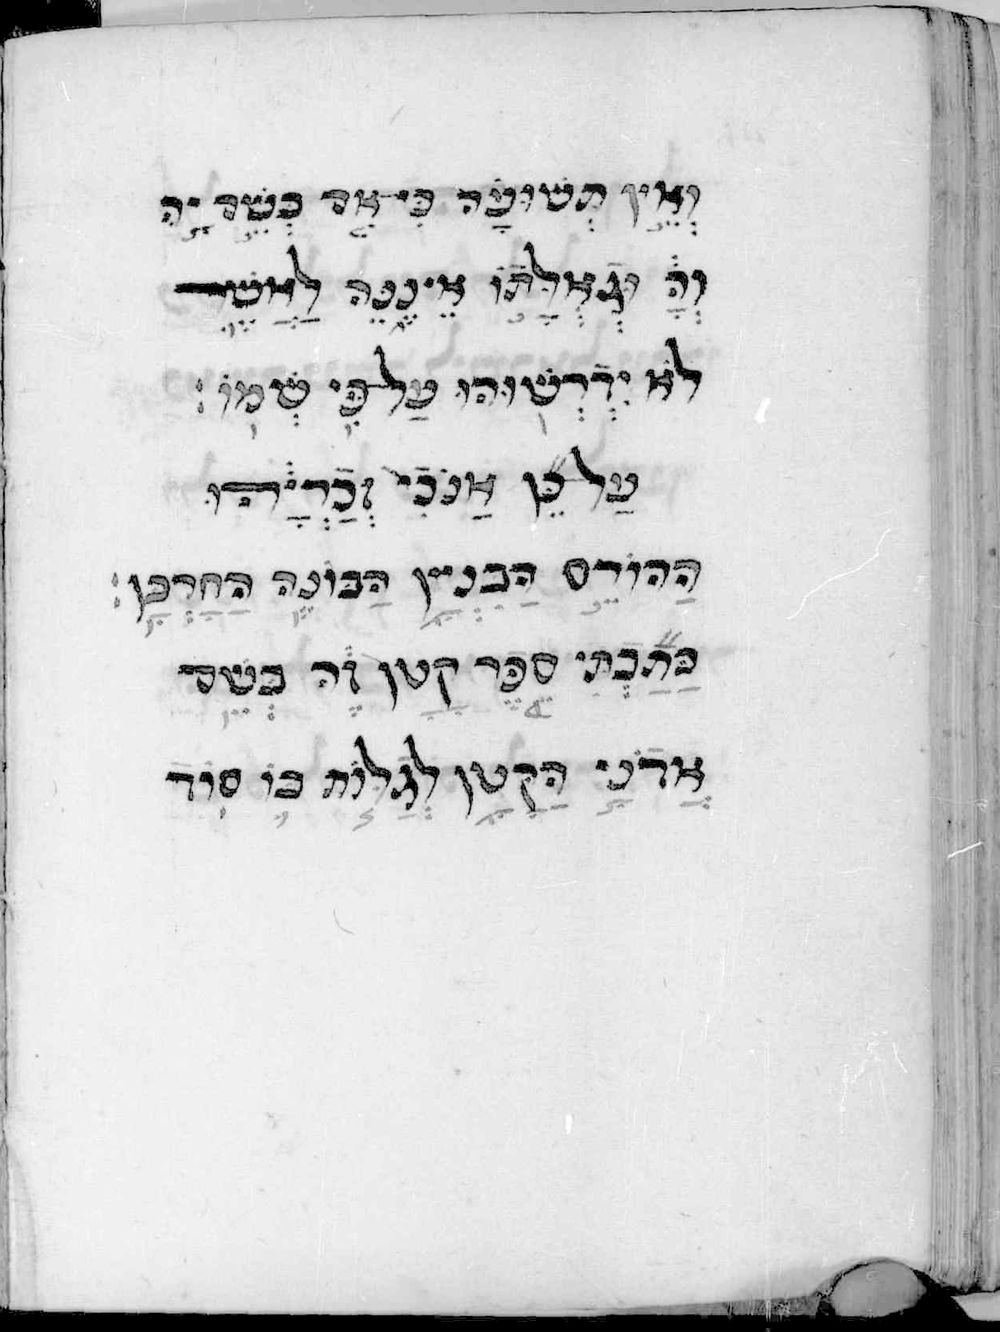 וְאֵין תְשׁוּעָה כִּי אִם בְּשֵׁם יְיָ
וְהָ וּגְאֻלָּתוֹ אֵינֶנָּה לַאֲשֶׁר
לֹא יִדְרְשׁוּהוּ עַל פִּי שְׁמוֹ׃
עַל כֵּן אָנֹכִי זְכַרְיָהוּ
הַהוֹרֵס הַבִּנְיָן הַבּוֹנֶה הַחֻרְבָּן׃
כָּתַבְתִּי סֵפֶר קָטָן זֶה בְּשֵׁם
אֲדֹנָי הַקָּטָן לְגַלּוֹת בּוֹ סוֹד